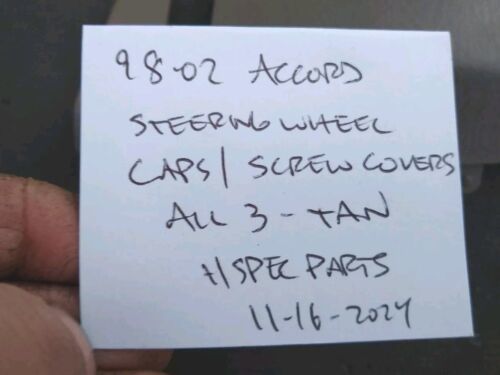 98-02 ACCORD
STEERING WHEEL
CAPS/ SCREW COVERS
ALL 3 - TAN
H/SPEC PARTS
11-16-2024